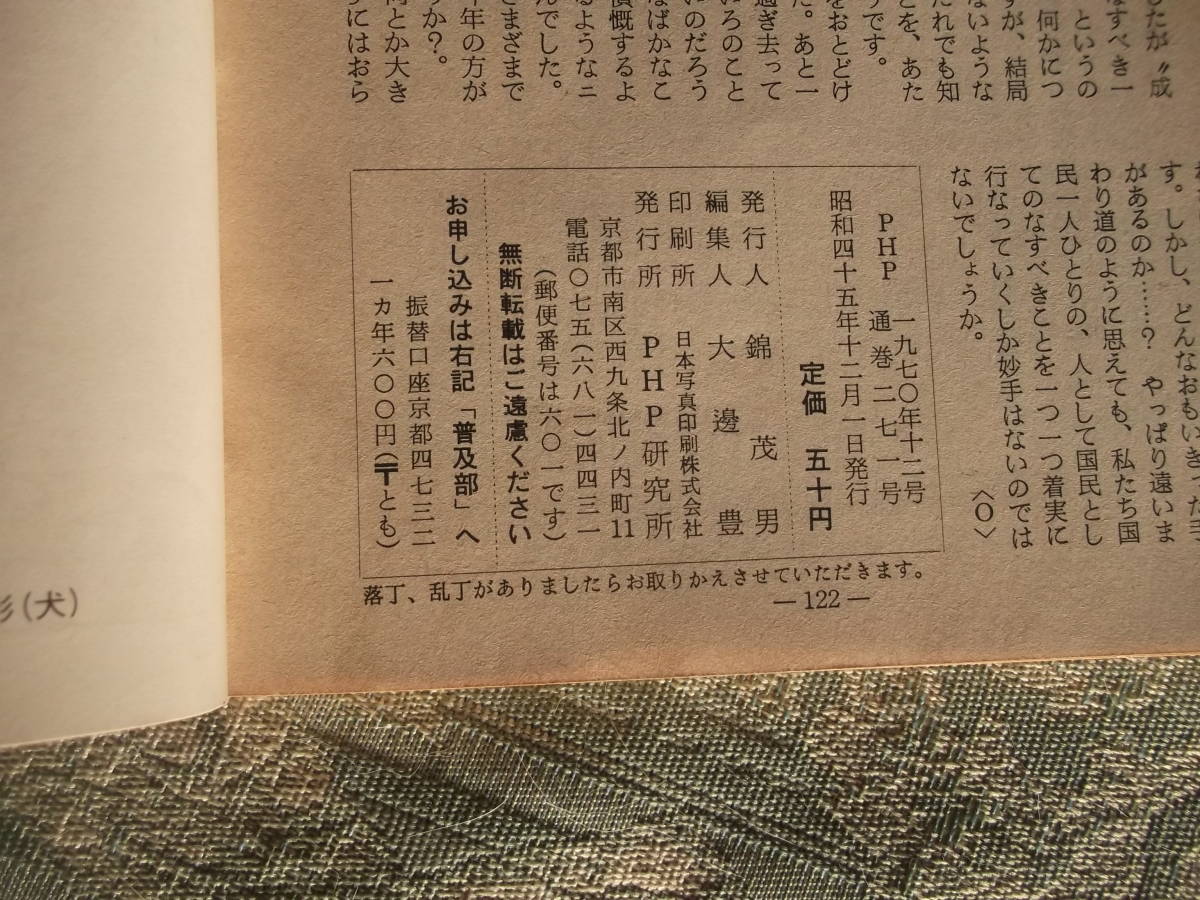 したが〝成
なすべき一
というの
何かにつ
すが、結局
ないような
だれでも知
とを、あた
うです。
をおとどけ
た。あと一
過ぎ去って
いろのこと
いのだろう
なばかなこ
憤慨するよ
るようなニ
んでした。
さまざまで
年の方が
うか?。
何とか大き
うにはおら
す。しかし、どんなおもいきった手
があるのか……? やっぱり遠いま
わり道のように思えても、私たち国
民一人ひとりの、人として国民とし
てのなすべきことを一つ一つ着実に
行なっていくしか妙手はないのでは
ないでしょうか。 〈O〉
PHP 一九七〇年十二号
通巻二七一号
昭和四十五年十二月一日発行
定価 五十円
発行人 錦 茂男
編集人 大邊 豊
印刷所 日本写真印刷株式会社
発行所 PHP研究所
京都市南区西九条北ノ内町11
電話〇七五(六八一)四四三一
(郵便番号は六〇一です)
無断転載はご遠慮ください
お申し込みは右記「普及部」へ
振替口座京都四七三二
一カ年六〇〇円(〒とも)
落丁、乱丁がありましたらお取りかえさせていただきます。
—122—
(犬)